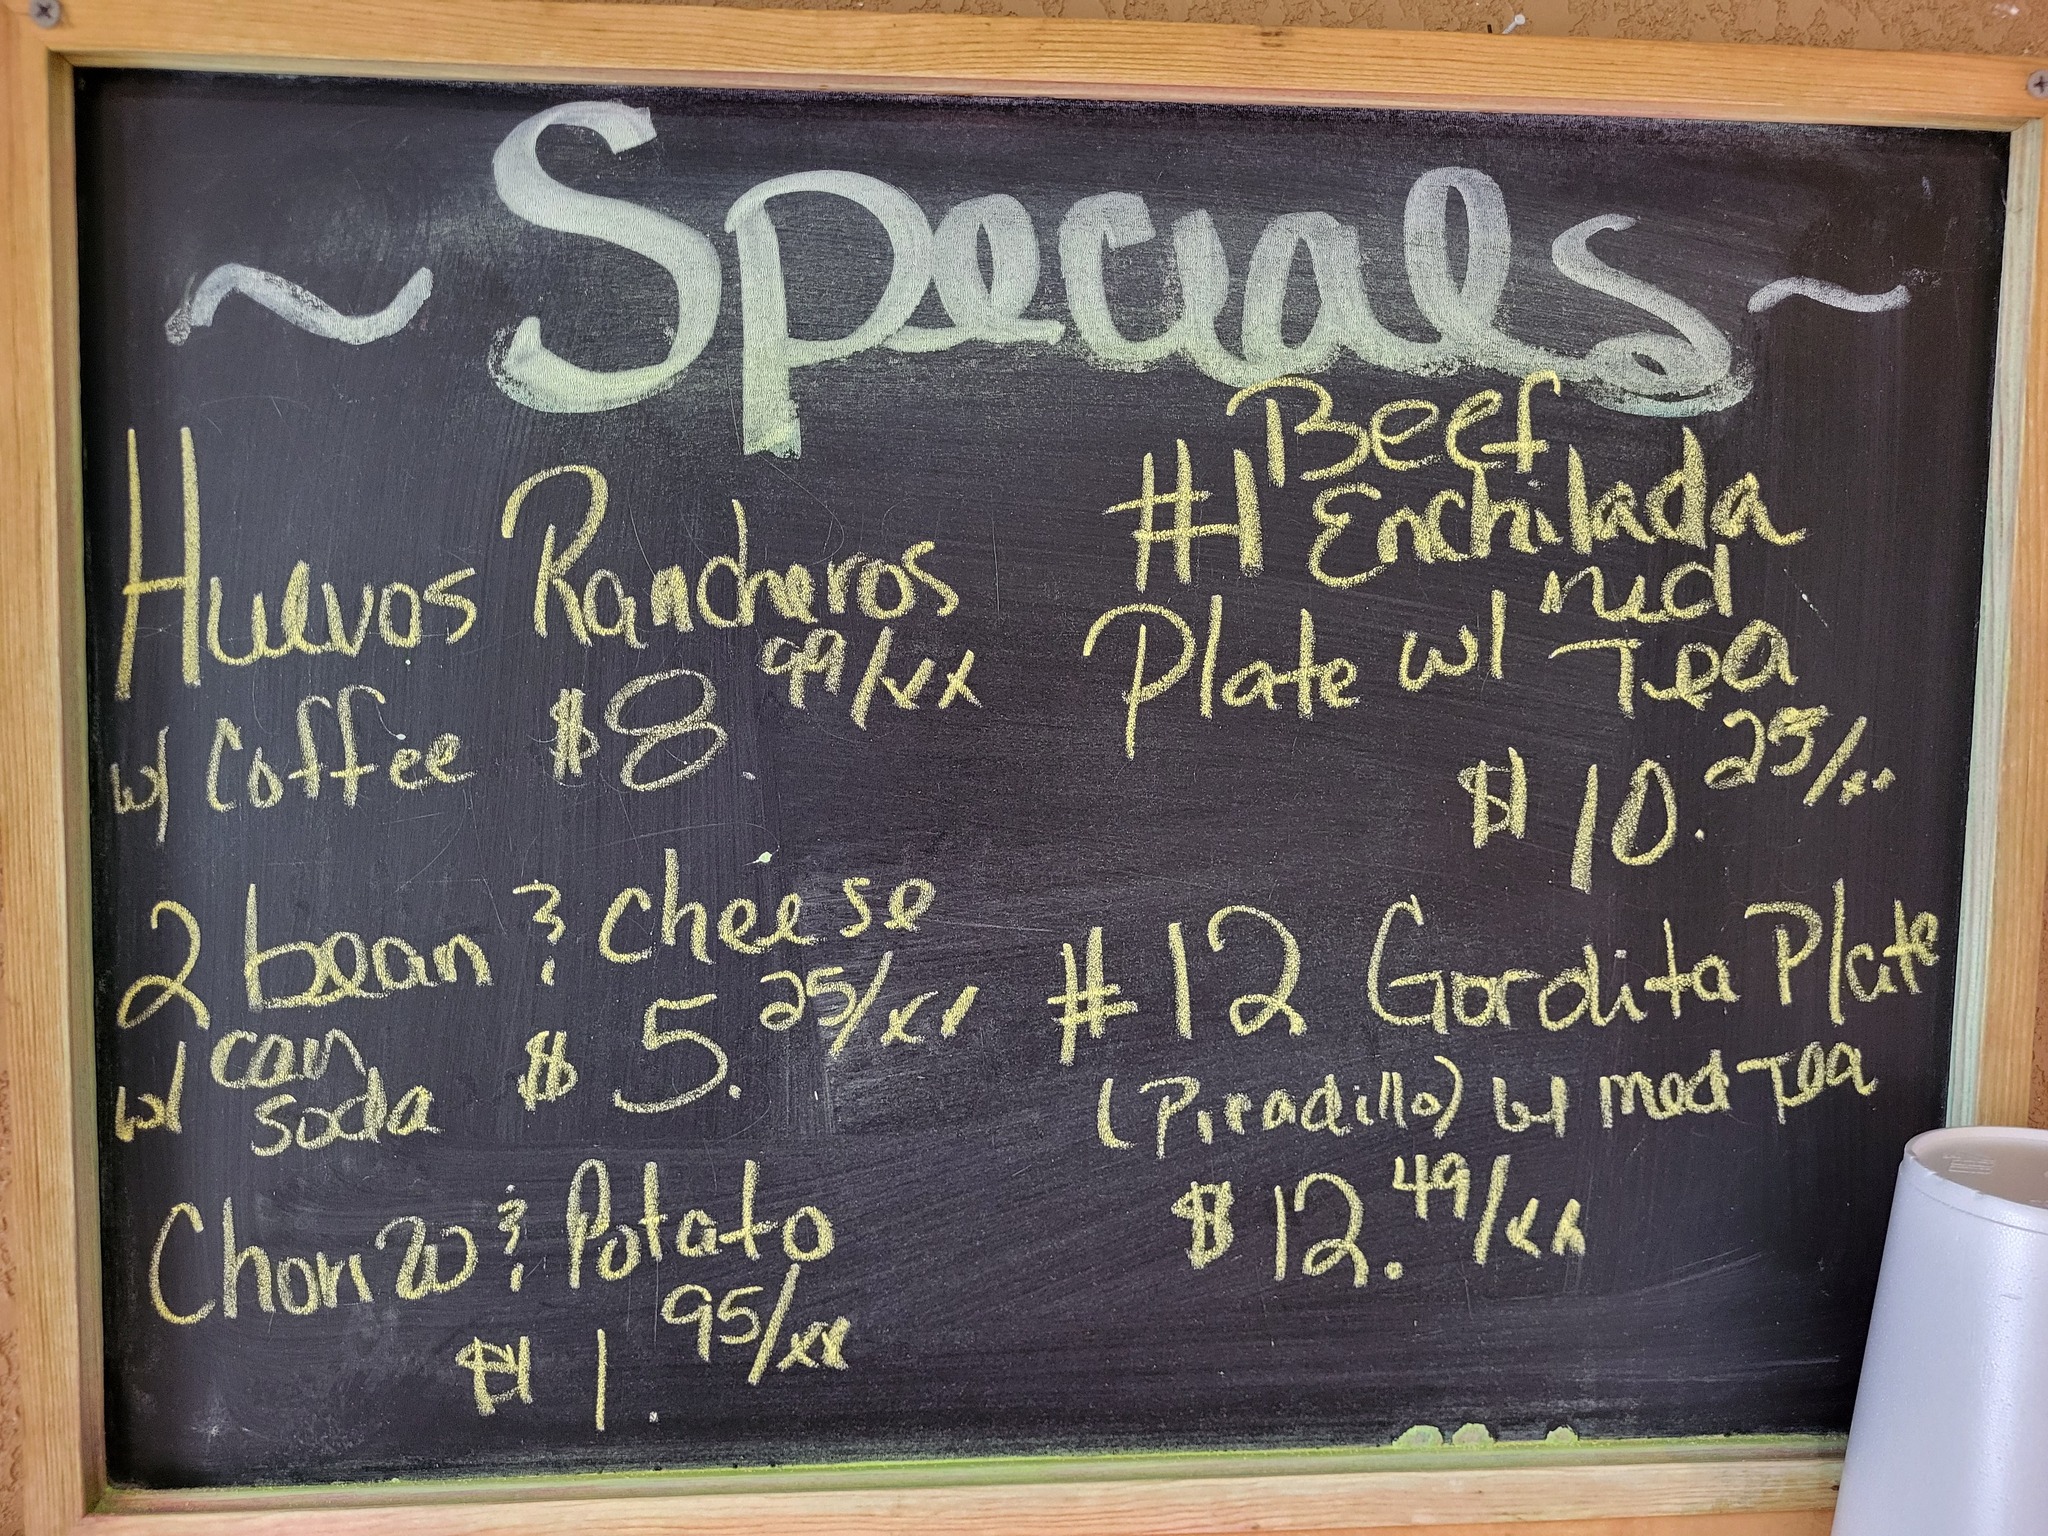 ~ Specials ~
Huevos Rancheros
w/ Coffee $8.99/xx
2 bean & cheese
w/ can soda $5.25/xx
Chorizo & Potato
$1.95/xx
#1 Beef Enchilada
Plate w/ med Tea
$10.25/xx
#12 Gordita Plate
(Picadillo) w/ med Tea
$12.49/xx